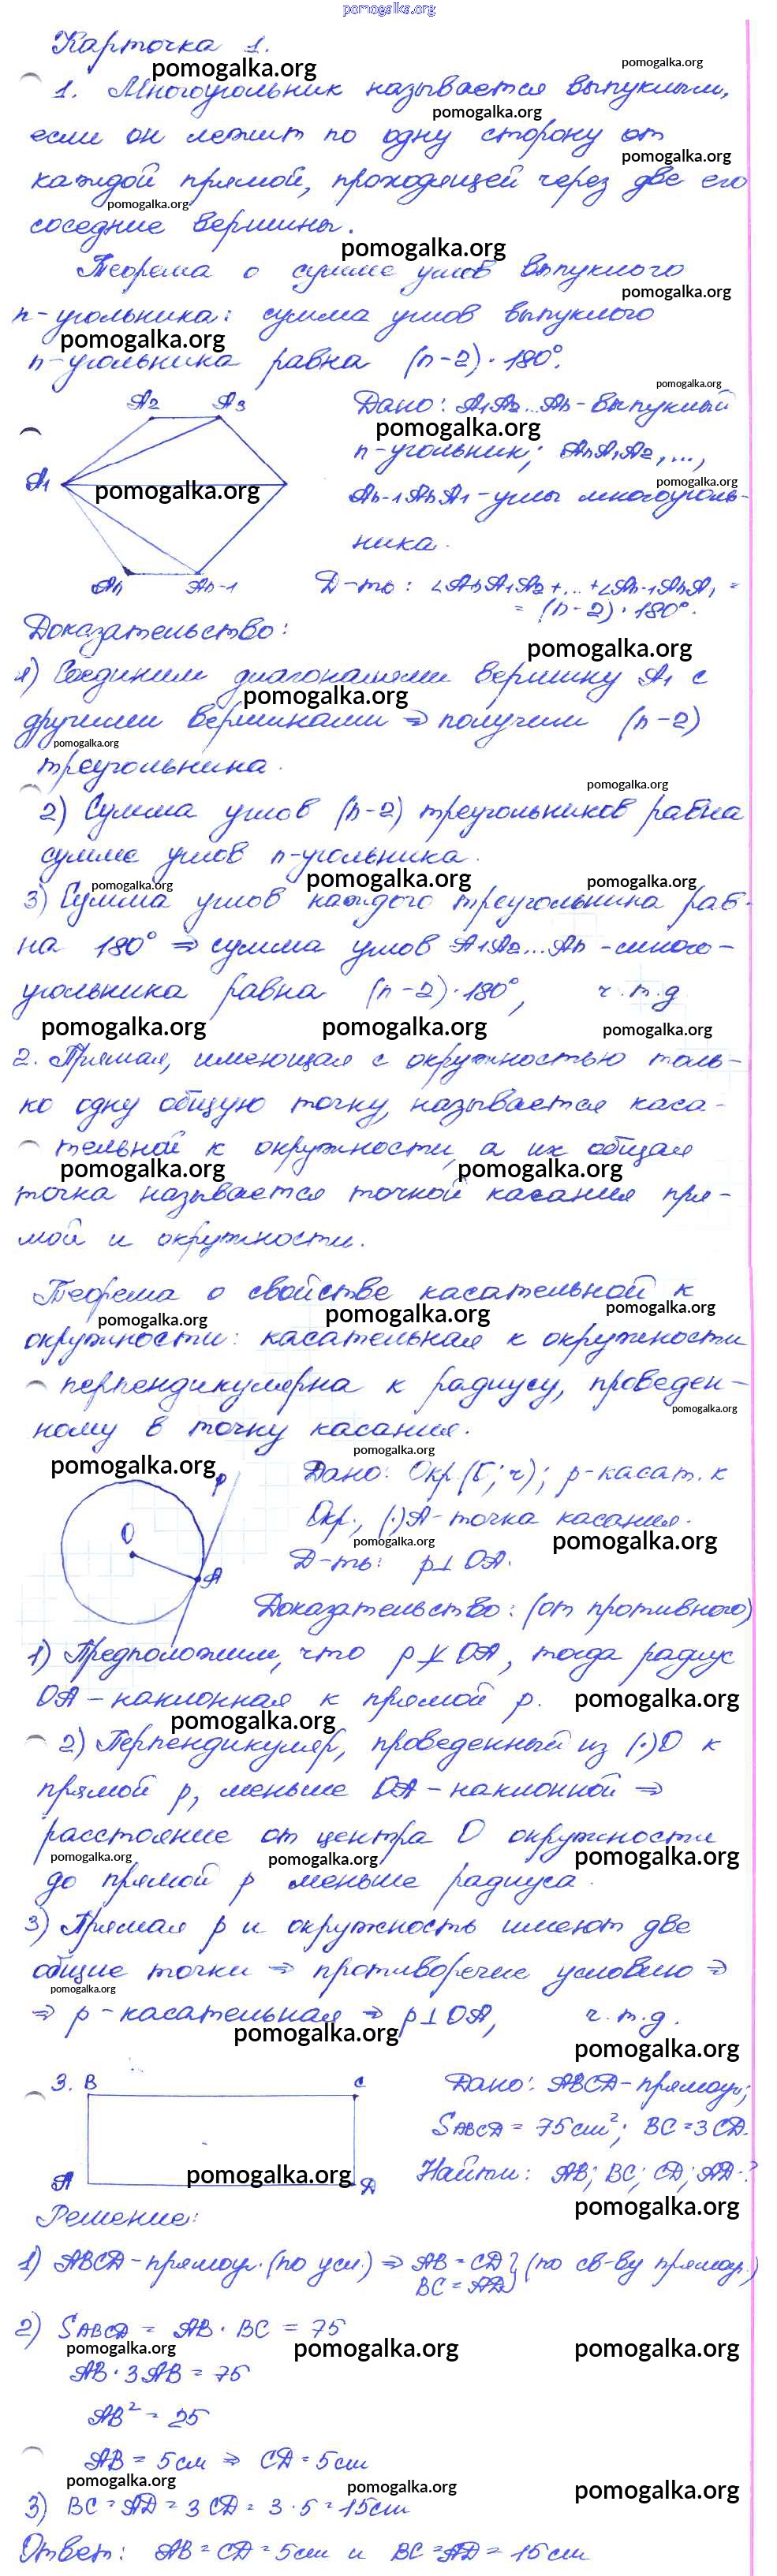 pomogalka.org
Карточка 1.
pomogalka.org
pomogalka.org
1. Многоугольник называется выпуклым,
pomogalka.org
если он лежит по одну сторону от
pomogalka.org
каждой прямой, проходящей через две его
pomogalka.org
соседние вершины.
pomogalka.org
Теорема о сумме углов выпуклого
pomogalka.org
n-угольника: сумма углов выпуклого
pomogalka.org
n-угольника равна (n-2)·180°.
pomogalka.org
A2 A3
Дано: A1A2...An-выпуклый
pomogalka.org
n-угольник; AnA1A2,...,
A1
pomogalka.org
pomogalka.org
An-1AnA1-углы многоуголь-
ника.
An An-1
Д-ть: ∠AnA1A2+...+∠An-1AnA1 =
= (n-2)·180°.
Доказательство:
pomogalka.org
1) Соединим диагоналями вершину A1 с
pomogalka.org
другими вершинами ⇒ получим (n-2)
pomogalka.org
треугольника.
pomogalka.org
2) Сумма углов (n-2) треугольников равна
сумме углов n-угольника.
pomogalka.org
pomogalka.org
pomogalka.org
3) Сумма углов каждого треугольника рав-
на 180° ⇒ сумма углов A1A2...An -много-
угольника равна (n-2)·180°, ч.т.д
pomogalka.org
pomogalka.org
pomogalka.org
2. Прямая, имеющая с окружностью толь-
ко одну общую точку, называется каса-
тельной к окружности, а их общая
pomogalka.org
pomogalka.org
точка называется точкой касания пря-
мой и окружности.
Теорема о свойстве касательной к
pomogalka.org
pomogalka.org
pomogalka.org
окружности: касательная к окружности
перпендикулярна к радиусу, проведен-
pomogalka.org
ному в точку касания.
pomogalka.org
pomogalka.org
p
Дано: Окр(O;r); p-касат. к
Окр., (·)A-точка касания.
O
pomogalka.org
pomogalka.org
A
Д-ть: p⊥OA.
Доказательство: (от противного)
1) Предположим, что p⊥̸OA, тогда радиус
OA-наклонная к прямой p.
pomogalka.org
pomogalka.org
2) Перпендикуляр, проведенный из (·)O к
прямой p, меньше OA-наклонной ⇒
расстояние от центра O окружности
pomogalka.org
pomogalka.org
pomogalka.org
до прямой p меньше радиуса.
3) Прямая p и окружность имеют две
общие точки ⇒ противоречие условию ⇒
pomogalka.org
⇒ p-касательная ⇒ p⊥OA, ч.т.д.
pomogalka.org
pomogalka.org
3. B C
Дано: ABCD-прямоуг;
SABCD = 75см²; BC=3CD.
pomogalka.org
A D
Найти: AB; BC; CD; AD-?
pomogalka.org
Решение:
1) ABCD-прямоуг.(по усл.) ⇒ AB = CD} (по св-ву прямоуг.)
BC = AD
2) SABCD = AB · BC = 75
pomogalka.org
pomogalka.org
pomogalka.org
AB·3AB = 75
AB² = 25
AB = 5см ⇒ CD=5см
pomogalka.org
pomogalka.org
pomogalka.org
3) BC=AD=3CD=3·5=15см
Ответ: AB=CD=5см и BC=AD=15см